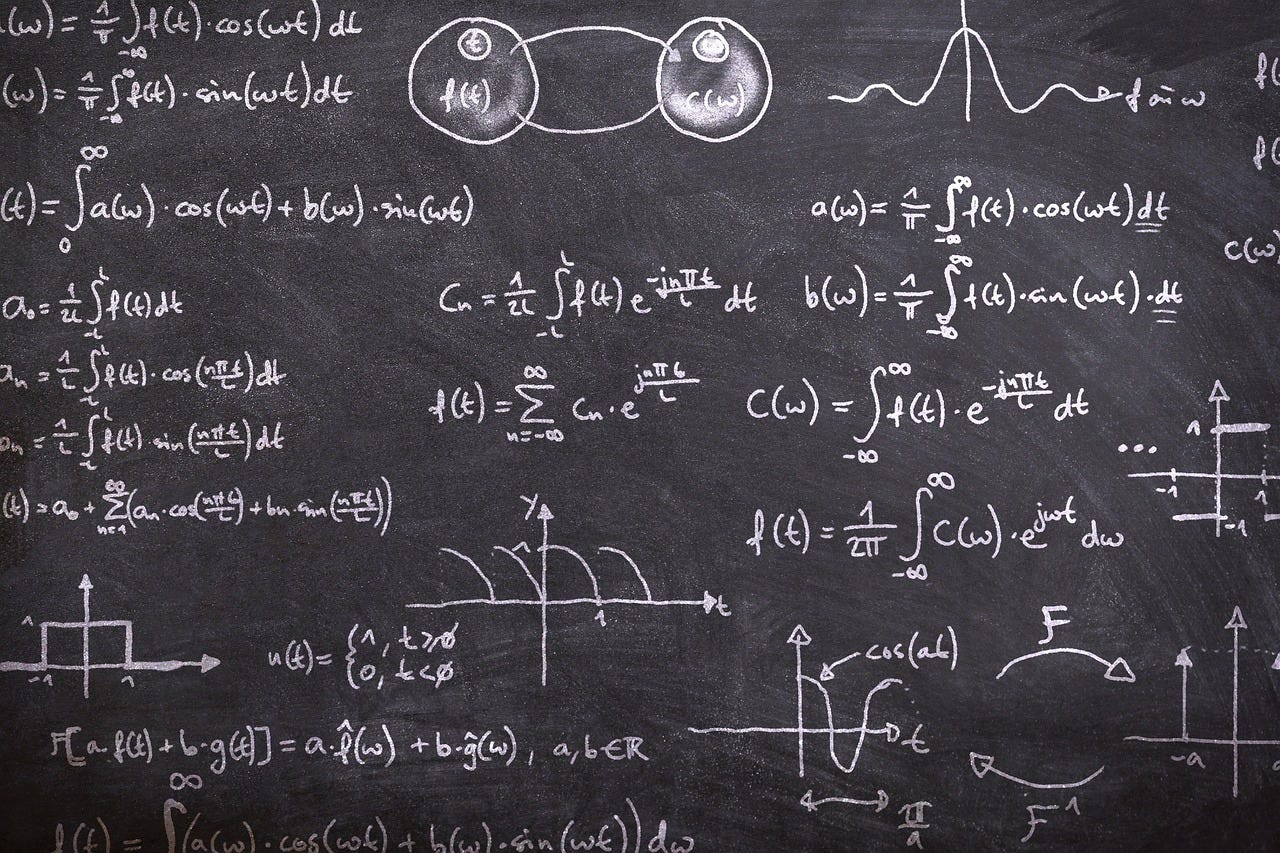 (ω) = 1/π ∫_{-∞} f(t)·cos(ωt) dt
(ω) = 1/π ∫_{-∞}^{∞} f(t)·sin(ωt) dt
t
f(t)
c(ω)
(t) = ∫_{0}^{∞} a(ω)·cos(ωt) + b(ω)·sin(ωt)
a(ω) = 1/π ∫_{-∞}^{∞} f(t)·cos(ωt) dt
c(ω)
a₀ = 1/2L ∫_{-L}^{L} f(t) dt
Cₙ = 1/2L ∫_{-L}^{L} f(t) e^{-jnπt/L} dt
b(ω) = 1/π ∫_{-∞}^{∞} f(t)·sin(ωt)·dt
aₙ = 1/L ∫_{-L}^{L} f(t)·cos(nπt/L) dt
f(t) = Σ_{n=-∞}^{∞} Cₙ·e^{jnπt/L}
C(ω) = ∫_{-∞}^{∞} f(t)·e^{-jnπt/L} dt
ₙ = 1/L ∫_{-L}^{L} f(t)·sin(nπt/L) dt
... 1 -1 1 -1
(t) = a₀ + Σ_{n=1}^{∞} (aₙ·cos(nπt/L) + bₙ·sin(nπt/L))
f(t) = 1/2π ∫_{-∞}^{∞} C(ω)·e^{jωt} dω
y 1 1 t
1 -1 1
u(t) = {1, t≥0
0, t<0
cos(at)
t
π/a
F
F⁻¹
-a
F[a·f(t) + b·g(t)] = a·f̂(ω) + b·ĝ(ω), a,b∈ℝ
f(t) = ∫^{∞} (a(ω)·cos(ωt) + b(ω)·sin(ωt)) dω